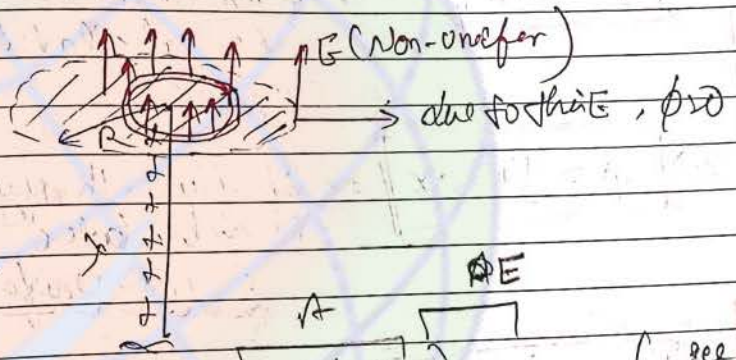 E (Non-unifor)
due to this E, φ=0
R
+
+
+
+
+
λ
∞
E
A